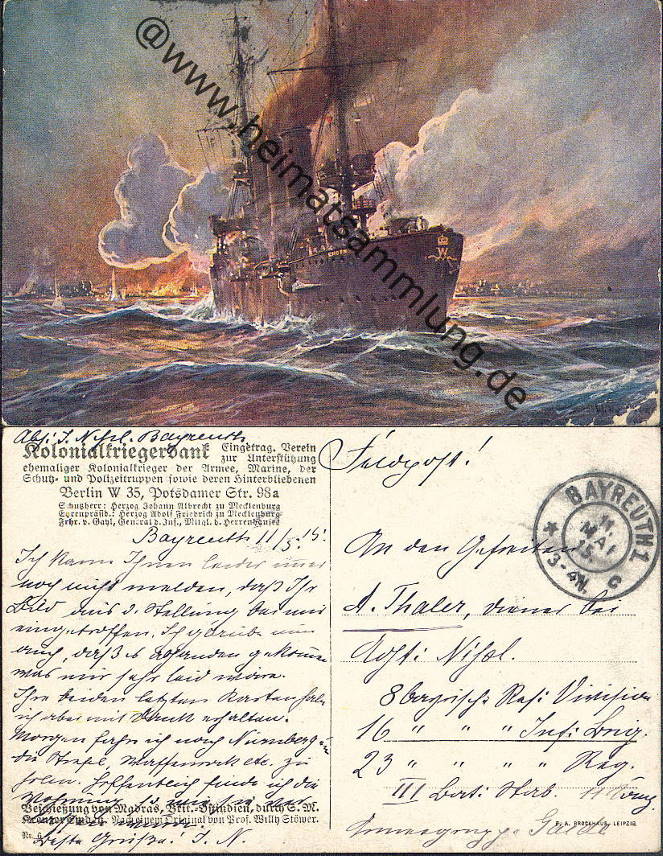 @www.heimatsammlung.de
W
Abs: J. Nißl. Bayreuth
Kolonialkriegerdank Eingetrag. Verein
zur Unterstützung
ehemaliger Kolonialkrieger der Armee, Marine, der
Schutz- und Polizeitruppen sowie deren Hinterbliebenen
Berlin W 35, Potsdamer Str. 98a
Schutzherr: Herzog Johann Albrecht zu Mecklenburg
Ehrenpräsid.: Herzog Adolf Friedrich zu Mecklenburg
Frhr. v. Gayl, General d. Inf., Mitgl. d. Herrenhauses
Bayreuth 11/5. 15.
Ich kann Ihnen leider immer
noch nicht melden, daß Ihr
Bild aus d. Stellung bei mir
eingetroffen. Ich glaube nun
auch, daß es abhanden gekommen
was mir sehr leid wäre.
Ihre beiden letzten Karten habe
ich aber mit Dank erhalten.
Morgen fahre ich nach Nürnberg um
die Stiefel, Waffenrock etc. zu
holen. Hoffentlich finde ich die
Beschießung von Madras, Brit.-Ostindien, durch S. M.
Kreuzer Emden. Nach einem Original von Prof. Willy Stöwer.
Nr. 6
Beste Grüße! J. N.
Feldpost!
BAYREUTH 1
11
MAI
15
3-4N. C
An den Gefreiten
A. Thaler, Diener bei
Adjt: Nißl.
8 bayrische Res: Division
16 " " " Inf: Brig.
23 " " " Reg.
III Bat: Stab.
Armeegruppe
F. A. BROCKHAUS, LEIPZIG